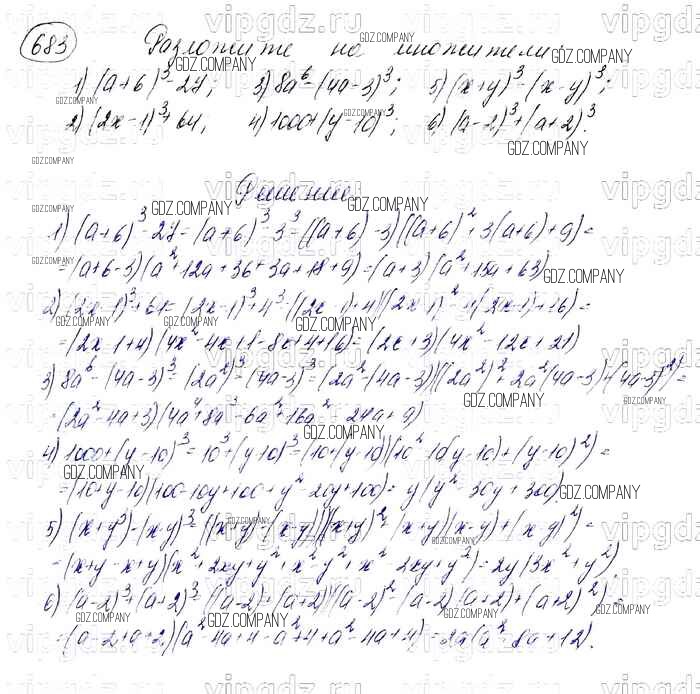 683 Разложите на множители:
1) (a+6)³-27; 3) 8a⁶-(4a-3)³; 5) (x+y)³-(x-y)³;
2) (2x-1)³+64; 4) 1000+(y-10)³; 6) (a-2)³+(a+2)³.
Решение
1) (a+6)³-27=(a+6)³-3³=((a+6)-3)((a+6)²+3(a+6)+9)=
=(a+6-3)(a²+12a+36+3a+18+9)=(a+3)(a²+15a+63)
2) (2x-1)³+64=(2x-1)³+4³=((2x-1)+4)((2x-1)²-4(2x-1)+16)=
=(2x-1+4)(4x²-4x+1-8x+4+16)=(2x+3)(4x²-12x+21)
3) 8a⁶-(4a-3)³=(2a²)³-(4a-3)³=(2a²-(4a-3))((2a²)²+2a²(4a-3)+(4a-3)²)=
=(2a²-4a+3)(4a⁴+8a³-6a²+16a²-24a+9)
4) 1000+(y-10)³=10³+(y-10)³=(10+(y-10))(10²-10(y-10)+(y-10)²)=
=(10+y-10)(100-10y+100+y²-20y+100)=y(y²-30y+300).
5) (x+y)³-(x-y)³=((x+y)-(x-y))((x+y)²+(x+y)(x-y)+(x-y)²)=
=(x+y-x+y)(x²+2xy+y²+x²-y²+x²-2xy+y²)=2y(3x²+y²)
6) (a-2)³+(a+2)³=((a-2)+(a+2))((a-2)²-(a-2)(a+2)+(a+2)²)=
=(a-2+a+2)(a²-4a+4-a²+4+a²-4a+4)=2a(a²-8a+12).